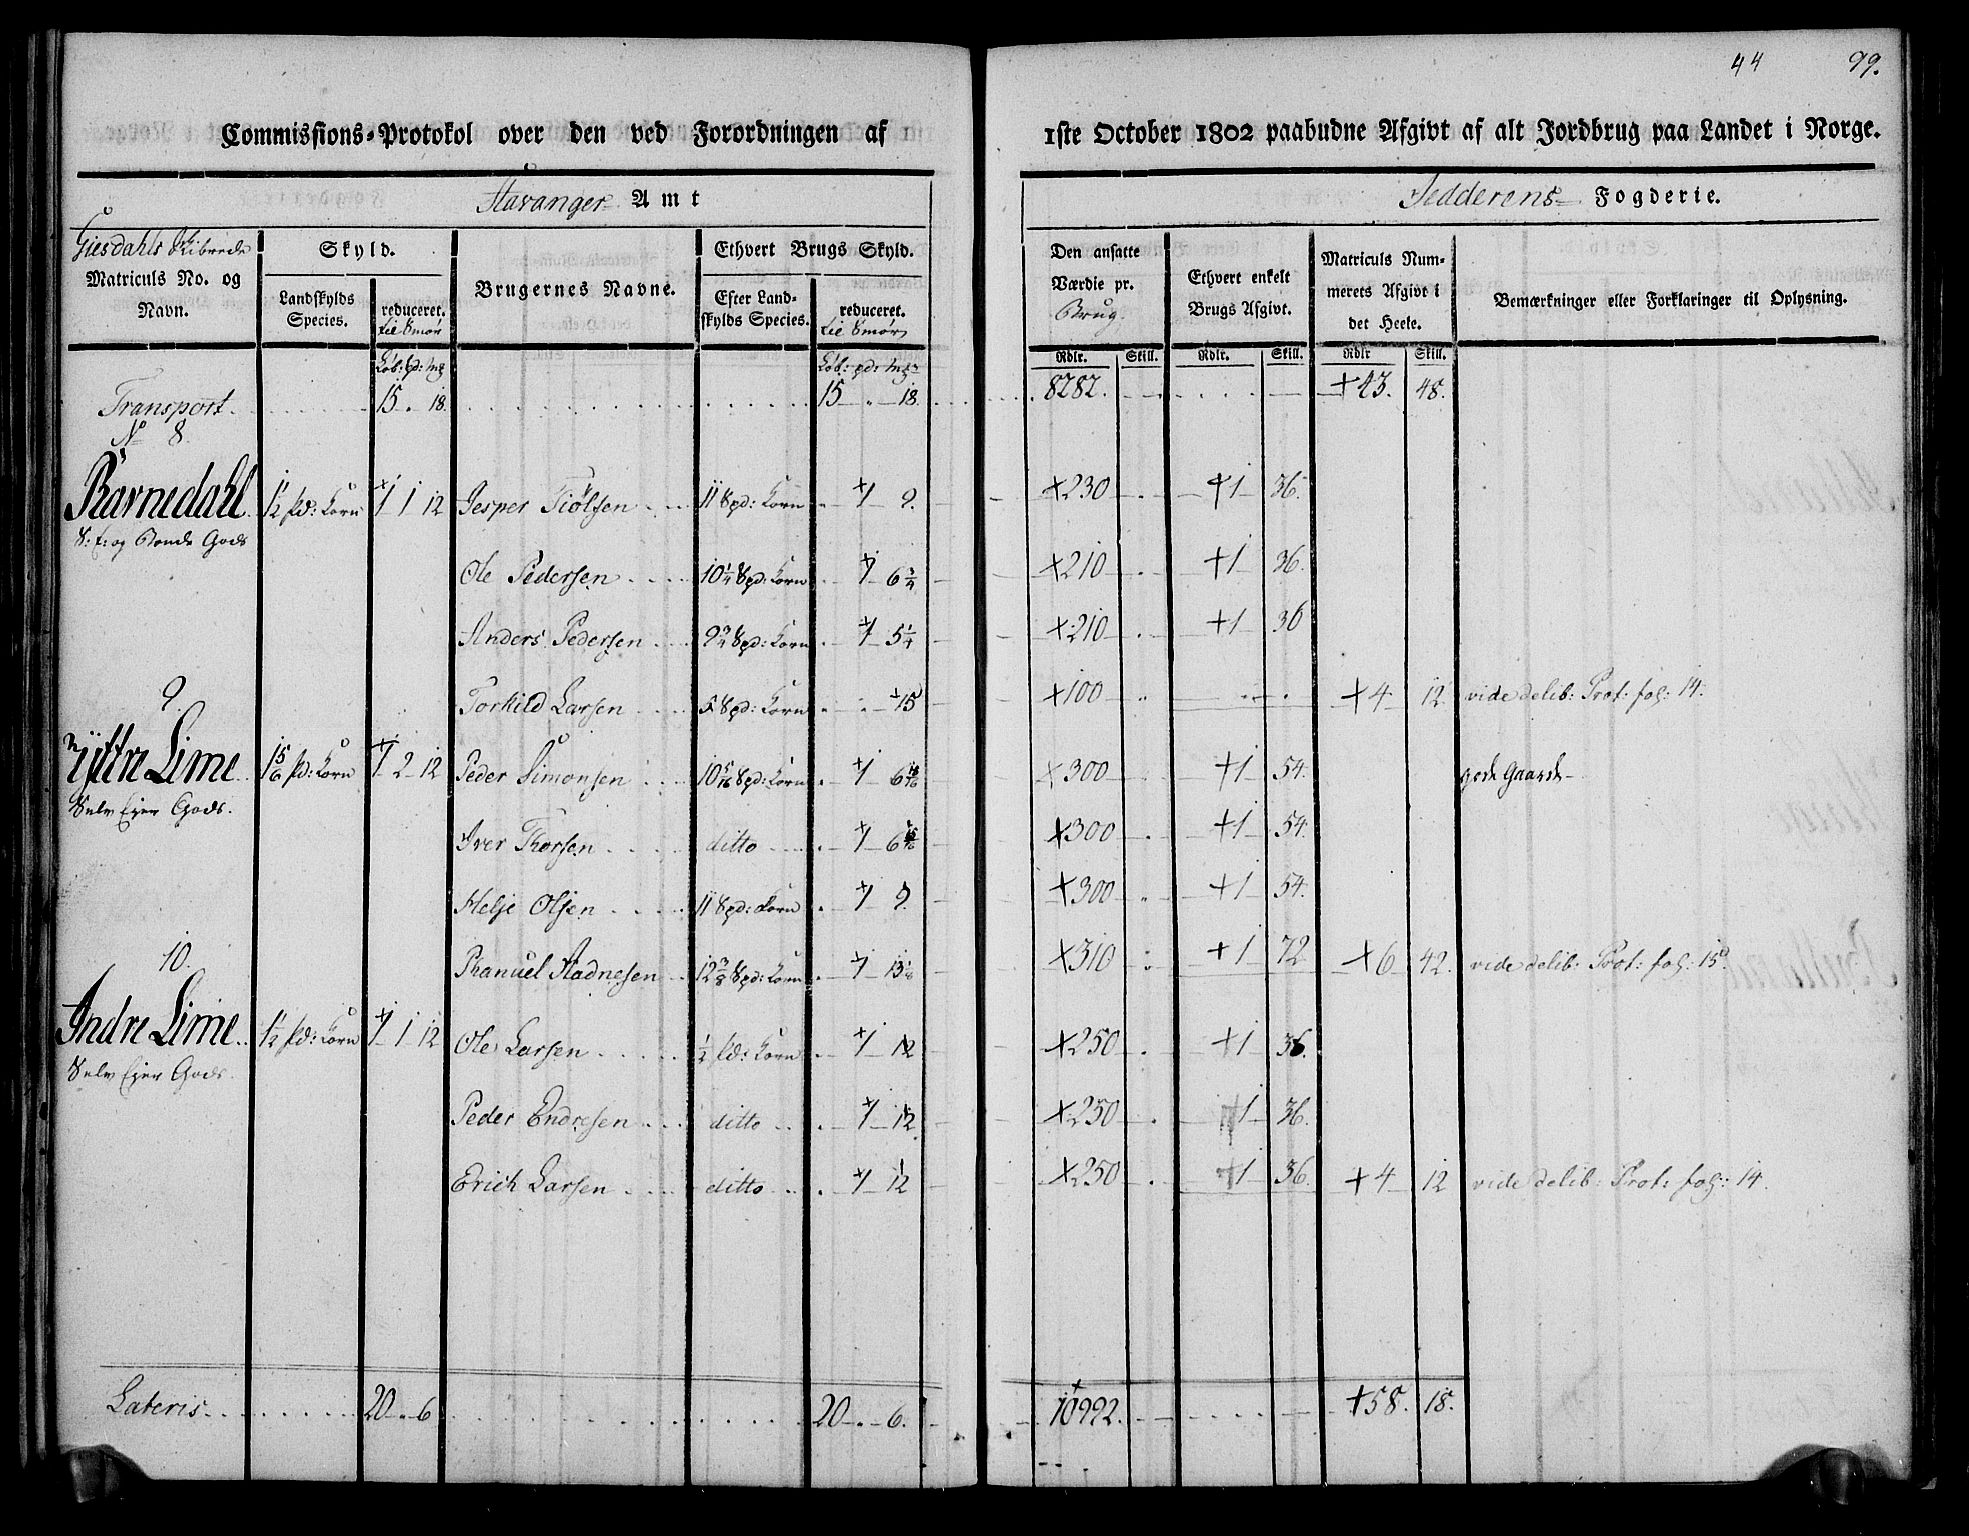 44 99.
Commissions-Protokol over den ved Forordningen af 1ste October 1802 paabudne Afgivt af alt Jordbrug paa Landet i Norge.
Stavanger Amt Jedderens Fogderie.
Giesdahls Skibrede
Matriculs No. og Navn.
Skyld.
Landskylds Species.
reduceret. til Smør
Brugernes Navne.
Ethvert Brugs Skyld.
Efter Landskylds Species.
reduceret. til Smør
Den ansatte Værdie pr. Brug.
Ethvert enkelt Brugs Afgivt.
Matriculs Nummerets Afgivt i det Heele.
Bemærkninger eller Forklaringer til Oplysning.
Rdlr. Skill. Rdlr. Skill. Rdlr Skill.
Transport. 15 . 18. 15 - " - 18. 8282. +43. 48.
No 8.
Ravnedahl 1½ pd: Korn 1 1 12 Jesper Tiølsen 11 Spd: Korn 1 9. +230 +1 36.
S: E: og Bonde Gods
Ole Pedersen 10¼ Spd: Korn 1 6¾ +210 +1 36.
Anders Pedersen 9¾ Spd: Korn 1 5¼ +210 +1 36
Torkild Larsen 5 Spd: Korn +15 +100 +4 12 vide delib: Prot: fol: 14.
9.
Yttre Lime 1⅚ pd: Korn 1 2 12 Peder Simonsen 10 5/16 Spd: Korn 1 6 +300 +1 54. gode Gaarde
Selv Ejer Gods.
Iver Thorsen ditto 1 6 +300 +1 54.
Helje Olsen 11 Spd: Korn 1 9 +300 +1 54.
Ranuel Aadnesen 12⅜ Spd: Korn 1 +310 +1 72 +6 42. vide delib: Prot: fol: 15.
10.
Indre Lime 1½ pd: Korn 1 1 12 Ole Larsen ½ pd: Korn 1 12 +250 +1 36.
Selv Ejer Gods.
Peder Endresen ditto 1 12 +250 +1 36.
Erich Larsen ditto 1 12 +250 +1 36 +4 12 vide delib: Prot: fol: 14.
Lateris 20 . 6 20 - " - 6. 10992. +58. 18.